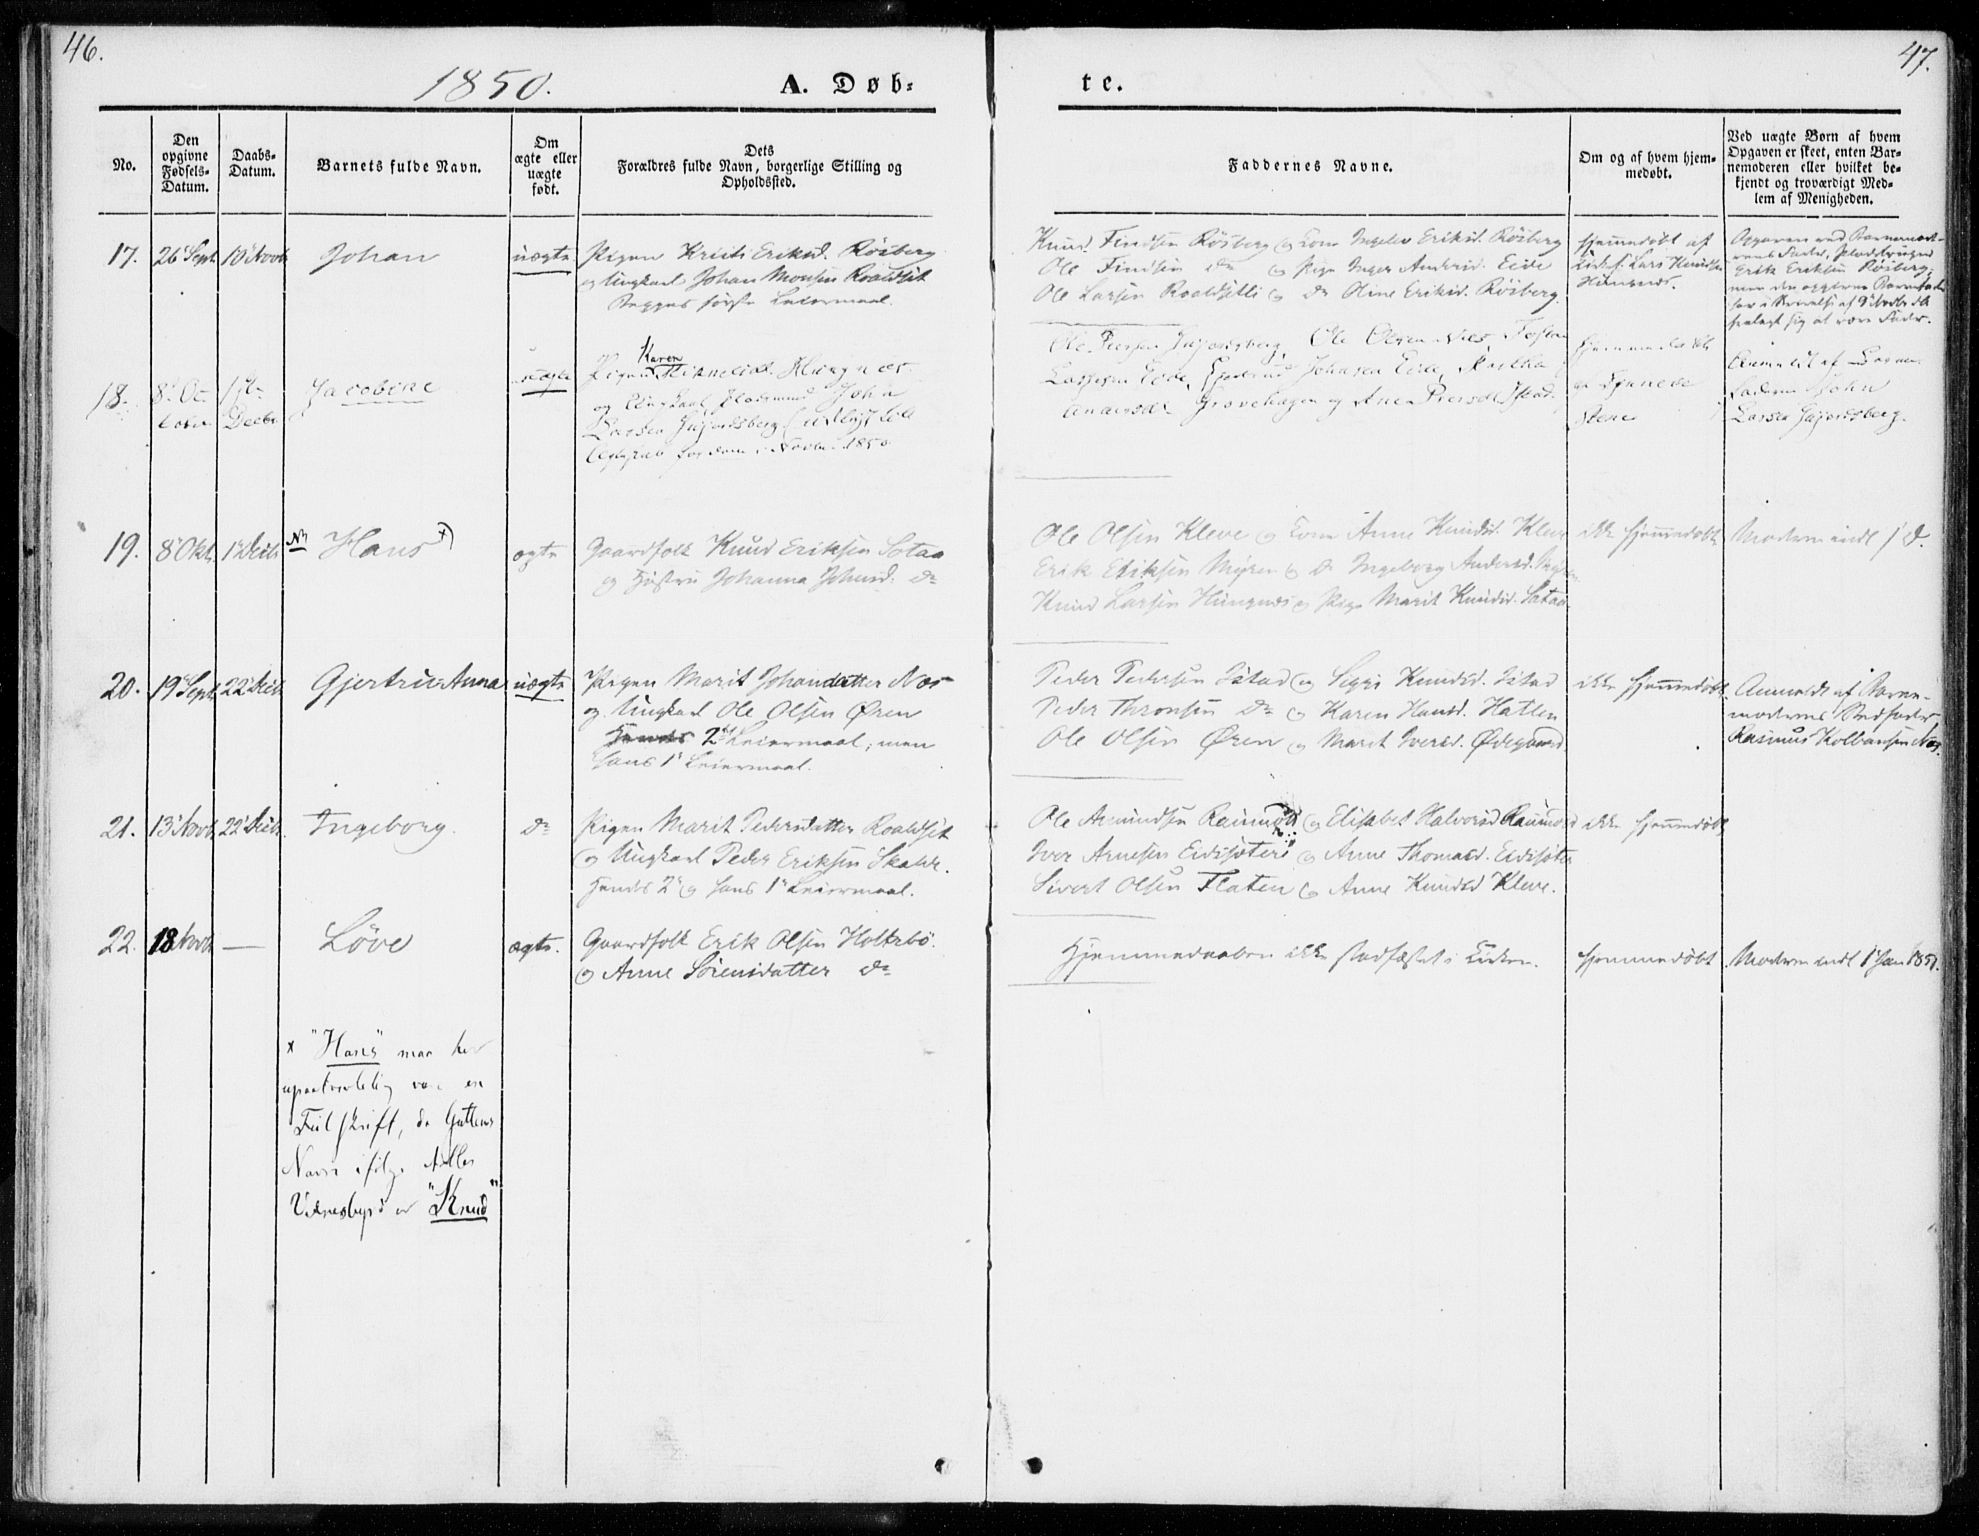 46.
47.
1850.
A. Døb-
te.
No.
Den opgivne Fødsels-Datum.
Daabs-Datum.
Barnets fulde Navn.
Om ægte eller uægte født.
Dets Forældres fulde Navn, borgerlige Stilling og Opholdssted.
Faddernes Navne.
Om og af hvem hjem-medøbt.
Ved uægte Børn af hvem Opgaven er skeet, enten Bar-nemoderen eller hvilket be-kjendt og troværdigt Med-lem af Menigheden.
17. 26 Sept. 10 Novb. Johan uægte
Pigen Kristi Eriksd. Röiberg
og Ungkarl Johan Monsen Roaldset
Begges første Leiermaal.
Knud Findsen Röiberg og Kone Ingelev Eriksd. Röiberg
Ole Findsen do og Pige Inger Andersd. Eide
Ole Larsen Roaldsetli og do Oline Eriksd. Röiberg.
hjemmedøbt af
Lars Knudsen
Hungnes.
Opgaven ved Barnemode-
rens Fader,
Erik Eriksen Röiberg;
men den opgivne Barnefader
har i Skrivelse af 9 Novbr
fralagt sig at være Fader.
18. 8 Oc-
tober
1ste
Decbr
Jacobine uægte
Pigen Karen Hungnes
og Ungkarl John
Larsen Gujordsberg
Ægteskab for dem i Novbr. 1850.
Ole Gujordsberg, Ole Olsen
Eide, Johnsen Eide, Martha
Andersdr Grovehagen og Ane
hjemmedøbt
af
Stene
Anmeldt af Barne-
faderen John
Larsen Gujordsberg.
19. 8 Okt. 1 Decb. NB Hans +) ægte
Gaardfolk Knud Eriksen Sotaa
og Hustru Johanna Johnsd. do
Ole Olsen Kleve og Kone Anne Knudsd. Kleve
Erik Eriksen Myren og do Ingeborg Andersd.
Knud Larsen Hungnes og Pige Marit Knudsd. Sotaa.
ikke hjemmedøbt.
Moderen indl
20. 19 Sept. 22 Decb. Gjertrud Anna uægte
Pigen Marit Johansdatter Næs
og Ungkarl Ole Olsen Øren
Hendes 2det Leiermaal, men
hans 1ste Leiermaal.
Peder Pedersen Istad og Siggri Knudsd. Istad
Peder Thronsen do og Karen Hansd. Hatlen
Ole Olsen Øren og Marit Iversd. Ødegaard
ikke hjemmedøbt.
Anmeldt af Barne-
moderens Stedfader
Rasmus Kolbansen Næs.
21. 13 Novb. 22 Decb. Ingeborg. do
Pigen Marit Pedersdatter Roaldset
og Ungkarl Peder Eriksen Skalde.
Hendes 2 og hans 1ste Leiermaal.
Ole Amundsen Raumold og Elisabet Halvorsd Raumold
Iver Arnesen Eidsæteri og Anne Thomasd. Eidsæter
Sivert Olsen Flaten og Anne Knudsd Kleve.
ikke hjemmedøbt
22. 18 Novb. — Löve ægte.
Gaardfolk Erik Olsen Holtebö.
og Anne Sörensdatter do
Hjemmedaaben ikke stadfæstet i Kirken.
hjemmedøbt
Moderen indl 1 Jan 1851.
x "Hans" maa her
upaatvivlelig være en
Feilskrift, da Guttens
Navn ifølge Alles
Vidnesbyrd er "Knud"